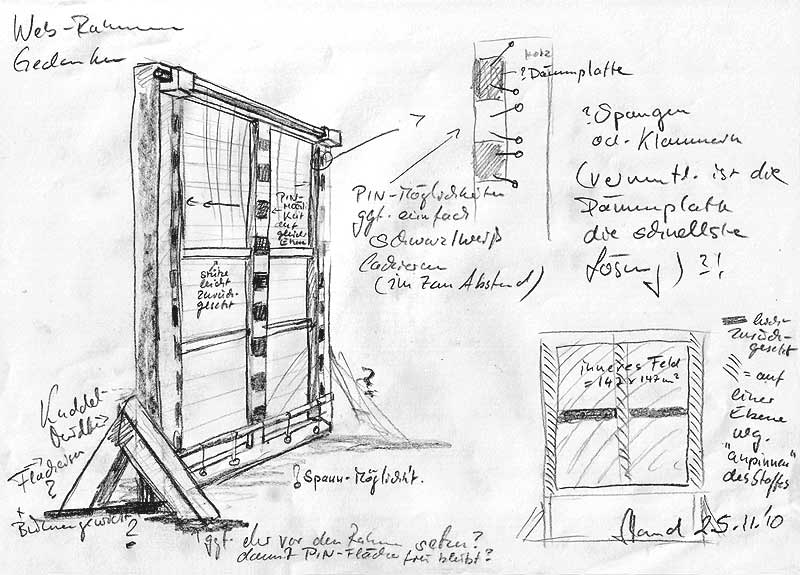 Web-Rahmen
Gedanken
Holz
? Dämmplatte
? Spangen
od. Klammern
(vermtl. ist die
Dämmplatte
die schnellste
Lösung) ?!
PIN-Möglichkeiten
ggf. einfach
schwarz/weiß
lackieren
(im 7cm Abstand)
PIN-
Mögl.
keit
auf
gleicher
Ebene
Stütze
leicht
zurück-
gesetzt
?
Knuddel-
Flacheisen
?
+ Bühnengewicht
?
? Spann-Möglichk't.
ggf. eher vor den Rahmen setzen?
damit PIN-Fläche frei bleibt?
inneres Feld
= 147 x 147 m²
zurück-
gesetzt
= auf
einer
Ebene
wg.
"anpinnen"
des Stoffes
Stand 25.11.'10